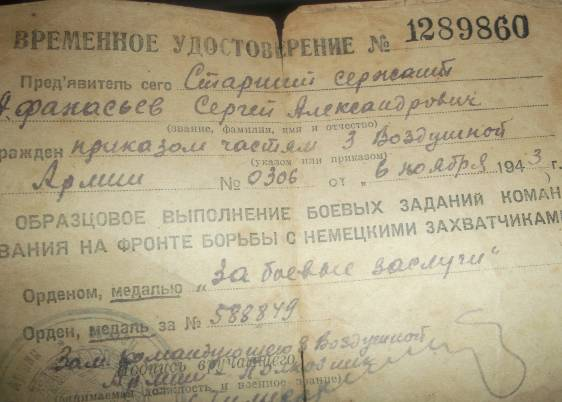 ВРЕМЕННОЕ УДОСТОВЕРЕНИЕ № 1289860
Пред'явитель сего Старший сержант
Афанасьев Сергей Александрович
(звание, фамилия, имя и отчество)
гражден приказом частям 3 Воздушной
(указом или приказом)
Армии № 0306 от "6 ноября 1943 г.
ОБРАЗЦОВОЕ ВЫПОЛНЕНИЕ БОЕВЫХ ЗАДАНИЙ КОМАН
ВАНИЯ НА ФРОНТЕ БОРЬБЫ С НЕМЕЦКИМИ ЗАХВАТЧИКАМИ
Орденом, медалью „За боевые заслуги"
Орден, медаль за № 588849
Зам. командующего 3 Воздушной
Подпись вручающего
Армии Полковник
(занимаемая должность и военное звание)